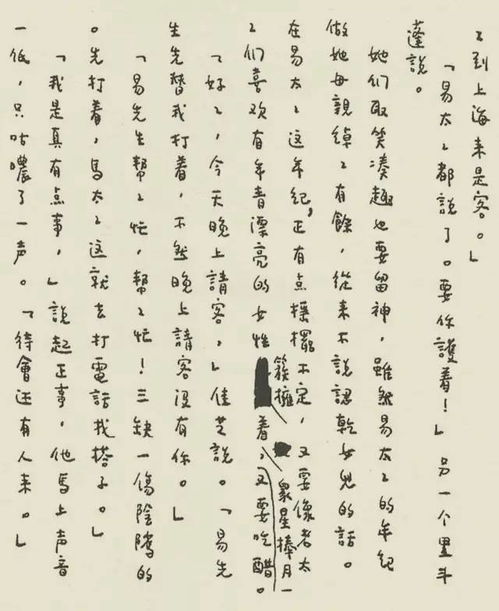 々到上海来是客。」
「易太々都說了。要你護着！」另一个黑斗
蓬說。
她们取笑凑趣也要留神，雖然易太々的年紀
做她母親綽々有餘，從来不說認乾女兒的話。
在易太々這年紀，正有点搖擺不定，又要像老太
々们喜欢有年青漂亮的女性簇擁着，眾星捧月一，又要吃醋。
「好々，今天晚上請客，」佳芝說。「易先
生先替我打着，不然晚上請客没有你。」
「易先生帮々忙，帮々忙！三缺一傷陰隲的
。先打着，馬太々這就去打電話找搭子。」
「我是真有点事，」說起正事，他馬上声音
一低，只咕噥了一声。「待會还有人来。」